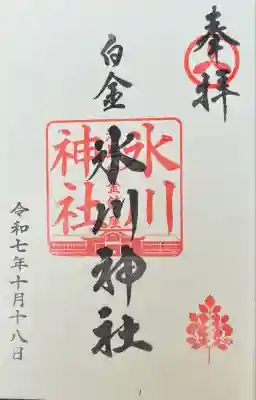 奉拝
白金
氷川神社
氷川
神社
令和七年十月十八日